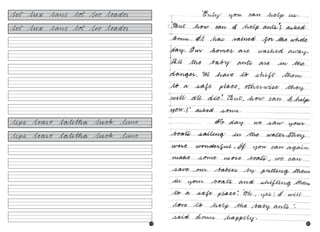 lot lux lane lot lee loader
lot lux lane lot lee loader
lips leave talitha luck line
lips leave talitha luck line
Only you can help us.
"But how can I help ants", asked
Somu. It has rained for the whole
day. Our homes are washed away.
All the baby ants are in the
danger. We have to shift them
to a safe place, otherwise they
will all die". "But, how can I help
you?" asked somu.
To day we saw your
boats sailing in the water. They
were wonderful. If you can again
make some more boats, we can
save our babies by putting them
in your boats and shifting them
to a safe place". "Oh, yes! I will
love to help the baby ants".
said Somu happily.